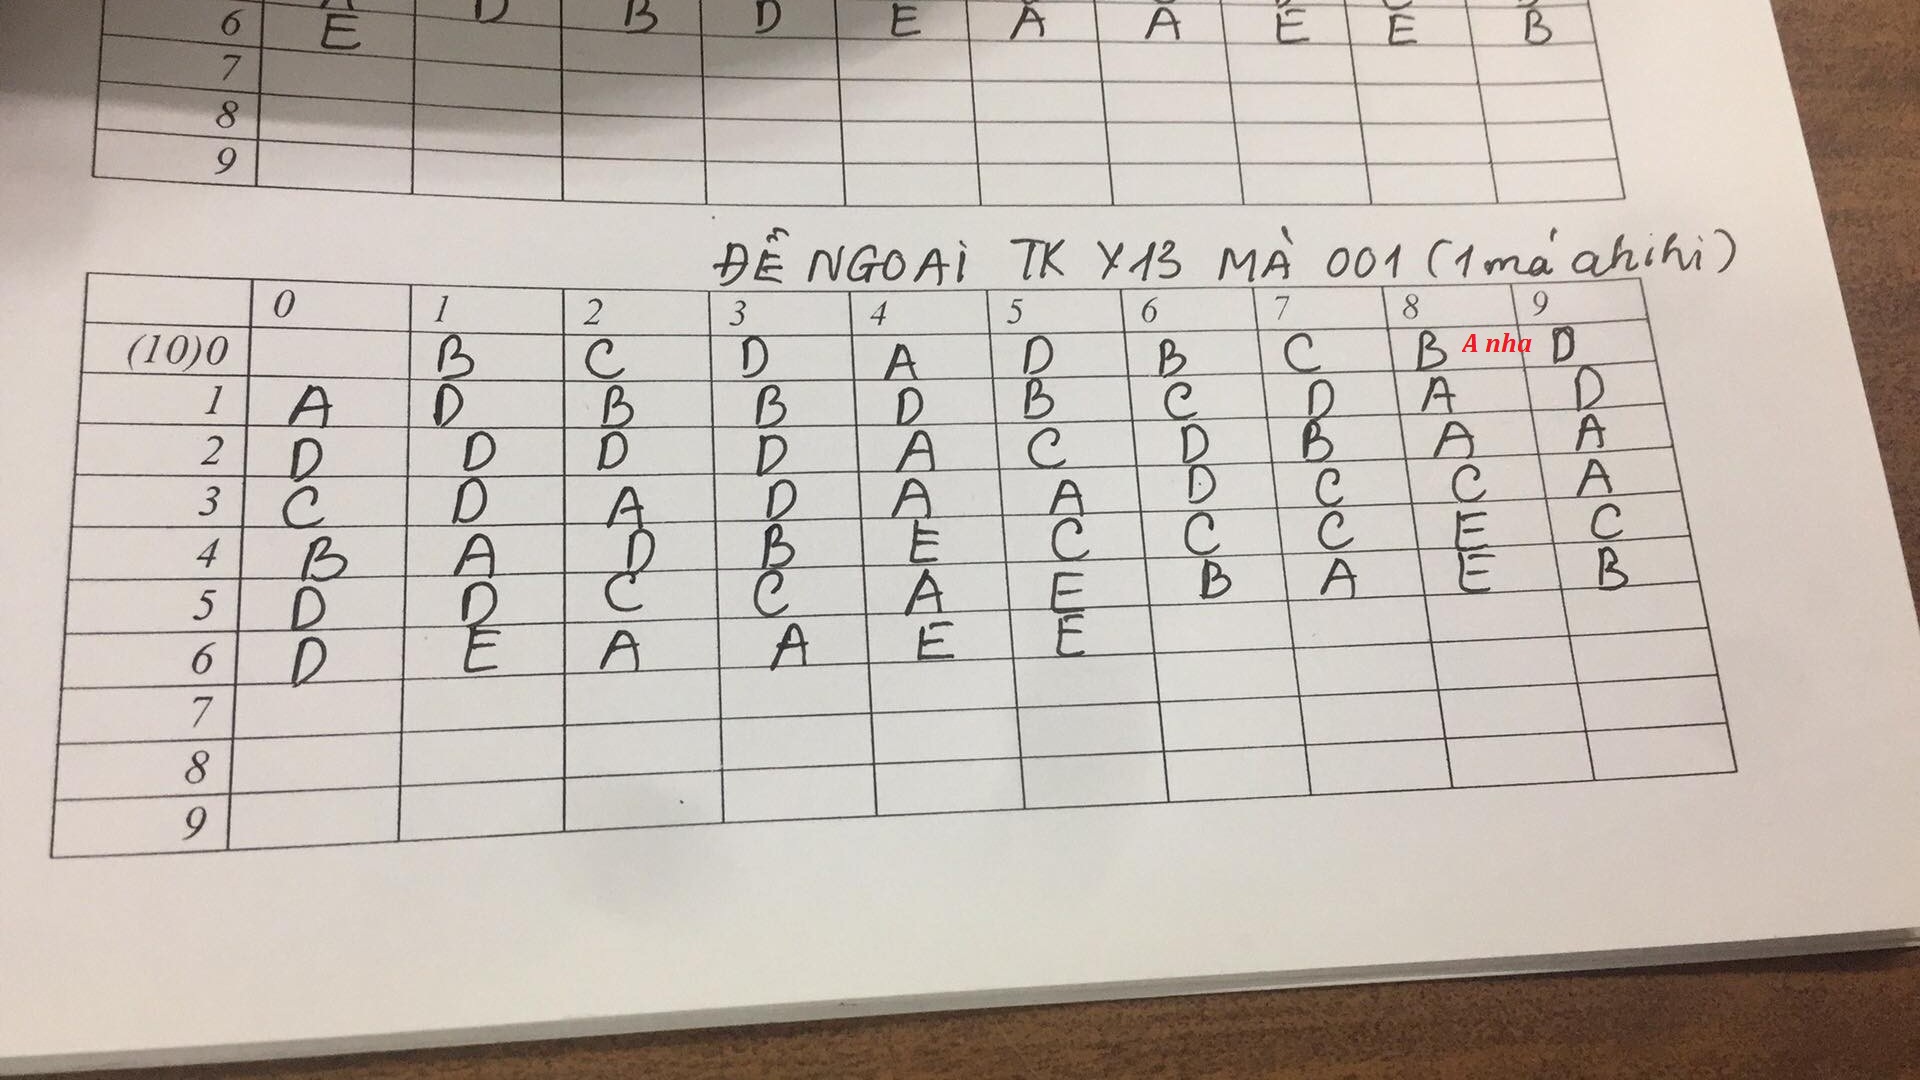 6 E D B D E A A E E B
7
8
9
ĐỀ NGOẠI TK Y13 MÀ 001 (1 má ahihi)
0 1 2 3 4 5 6 7 8 9
(10)0 B C D A D B C B A nha D
1 A D B B D B C D A D
2 D D D D A C D B A A
3 C D A D A A D C C A
4 B A D B E C C C E C
5 D D C C A E B A E B
6 D E A A E E
7
8
9